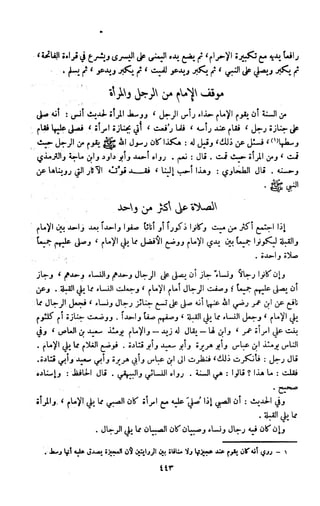 رافعاً يديه مع تكبيرة الإحرام ، ثم يضع يده اليمنى على اليسرى ويشرع في قراءة الفاتحة ،
ثم يكبر ويصلي على النبي ، ثم يكبر ويدعو للميت ، ثم يكبر ويدعو ، ثم يسلم .
موقف الإمام من الرجل والمرأة
من السنة أن يقوم الإمام حذاء رأس الرجل ، ووسط المرأة لحديث أنس : أنه صلى
على جنازة رجل ، فقام عند رأسه ، فلما رفعت ، أتي بجنازة امرأة ، فصلى عليها فقام
وسطها(١) ، فسئل عن ذلك ، وقيل له : هكذا كان رسول الله ﷺ يقوم من الرجل حيث
قمت ، ومن المرأة حيث قمت . قال : نعم . رواه أحمد وأبو داود وابن ماجة والترمذي
وحسنه . قال الطحاوي : وهذا أحب إلينا ، فقد قوته الآثار التي رويناها عن
النبي ﷺ .
الصلاة على أكثر من واحد
إذا اجتمع أكثر من ميت وكانوا ذكوراً أو أناثاً صفوا واحداً بعد واحد بين الإمام
والقبلة ليكونوا جميعاً بين يدي الإمام ووضع الأفضل مما يلي الإمام ، وصلى عليهم جميعاً
صلاة واحدة .
وإن كانوا رجالاً ونساءً جاز أن يصلى على الرجال وحدهم والنساء وحدهم ، وجاز
أن يصلى عليهم جميعاً ؛ وصفت الرجال أمام الإمام ، وجعلت النساء مما يلي القبلة . وعن
نافع عن ابن عمر رضي الله عنها أنه صلى على تسع جنائز رجال ونساء ، فجعل الرجال مما
يلي الإمام ، وجعل النساء مما يلي القبلة ، وصفهم صفاً واحداً . ووضعت جنازة أم كلثوم
بنت علي امرأة عمر ، وابن لها - يقال له زيد - والإمام يومئذ سعيد بن العاص ، وفي
الناس يومئذ ابن عباس وأبو هريرة وأبو سعيد وأبو قتادة . فوضع الغلام مما يلي الإمام .
قال رجل : فأنكرت ذلك ، فنظرت الى ابن عباس وأبي هريرة وأبي سعيد وأبي قتادة .
فقلت : ما هذا ؟ قالوا : هي السنة . رواه النسائي والبيهقي . قال الحافظ : وإسناده
صحيح .
وفي الحديث : أن الصبي إذا صُلّي عليه مع امرأة كان الصبي مما يلي الإمام ، والمرأة
مما يلي القبلة .
وإن كان فيه رجال ونساء وصبيان كان الصبيان مما يلي الرجال .
١ - روي أنه كان يقوم عند عجيزتها ولا منافاة بين الروايتين لأن العجيزة يصدق عليه أنها وسط .
٤٤٣